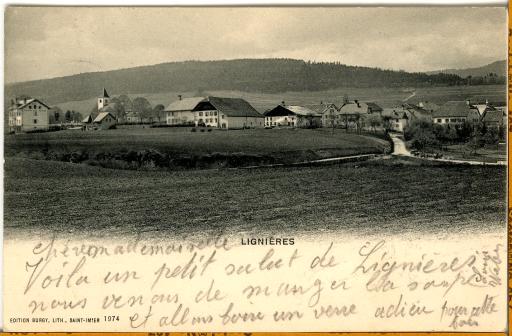 LIGNIÈRES
chère mademoiselle
Voila un petit salut de Lignieres
nous venons de manger la soupe
et allons boire un verre adieu pour cette
fois
EDITION BURGY, LITH., SAINT-IMIER 1974